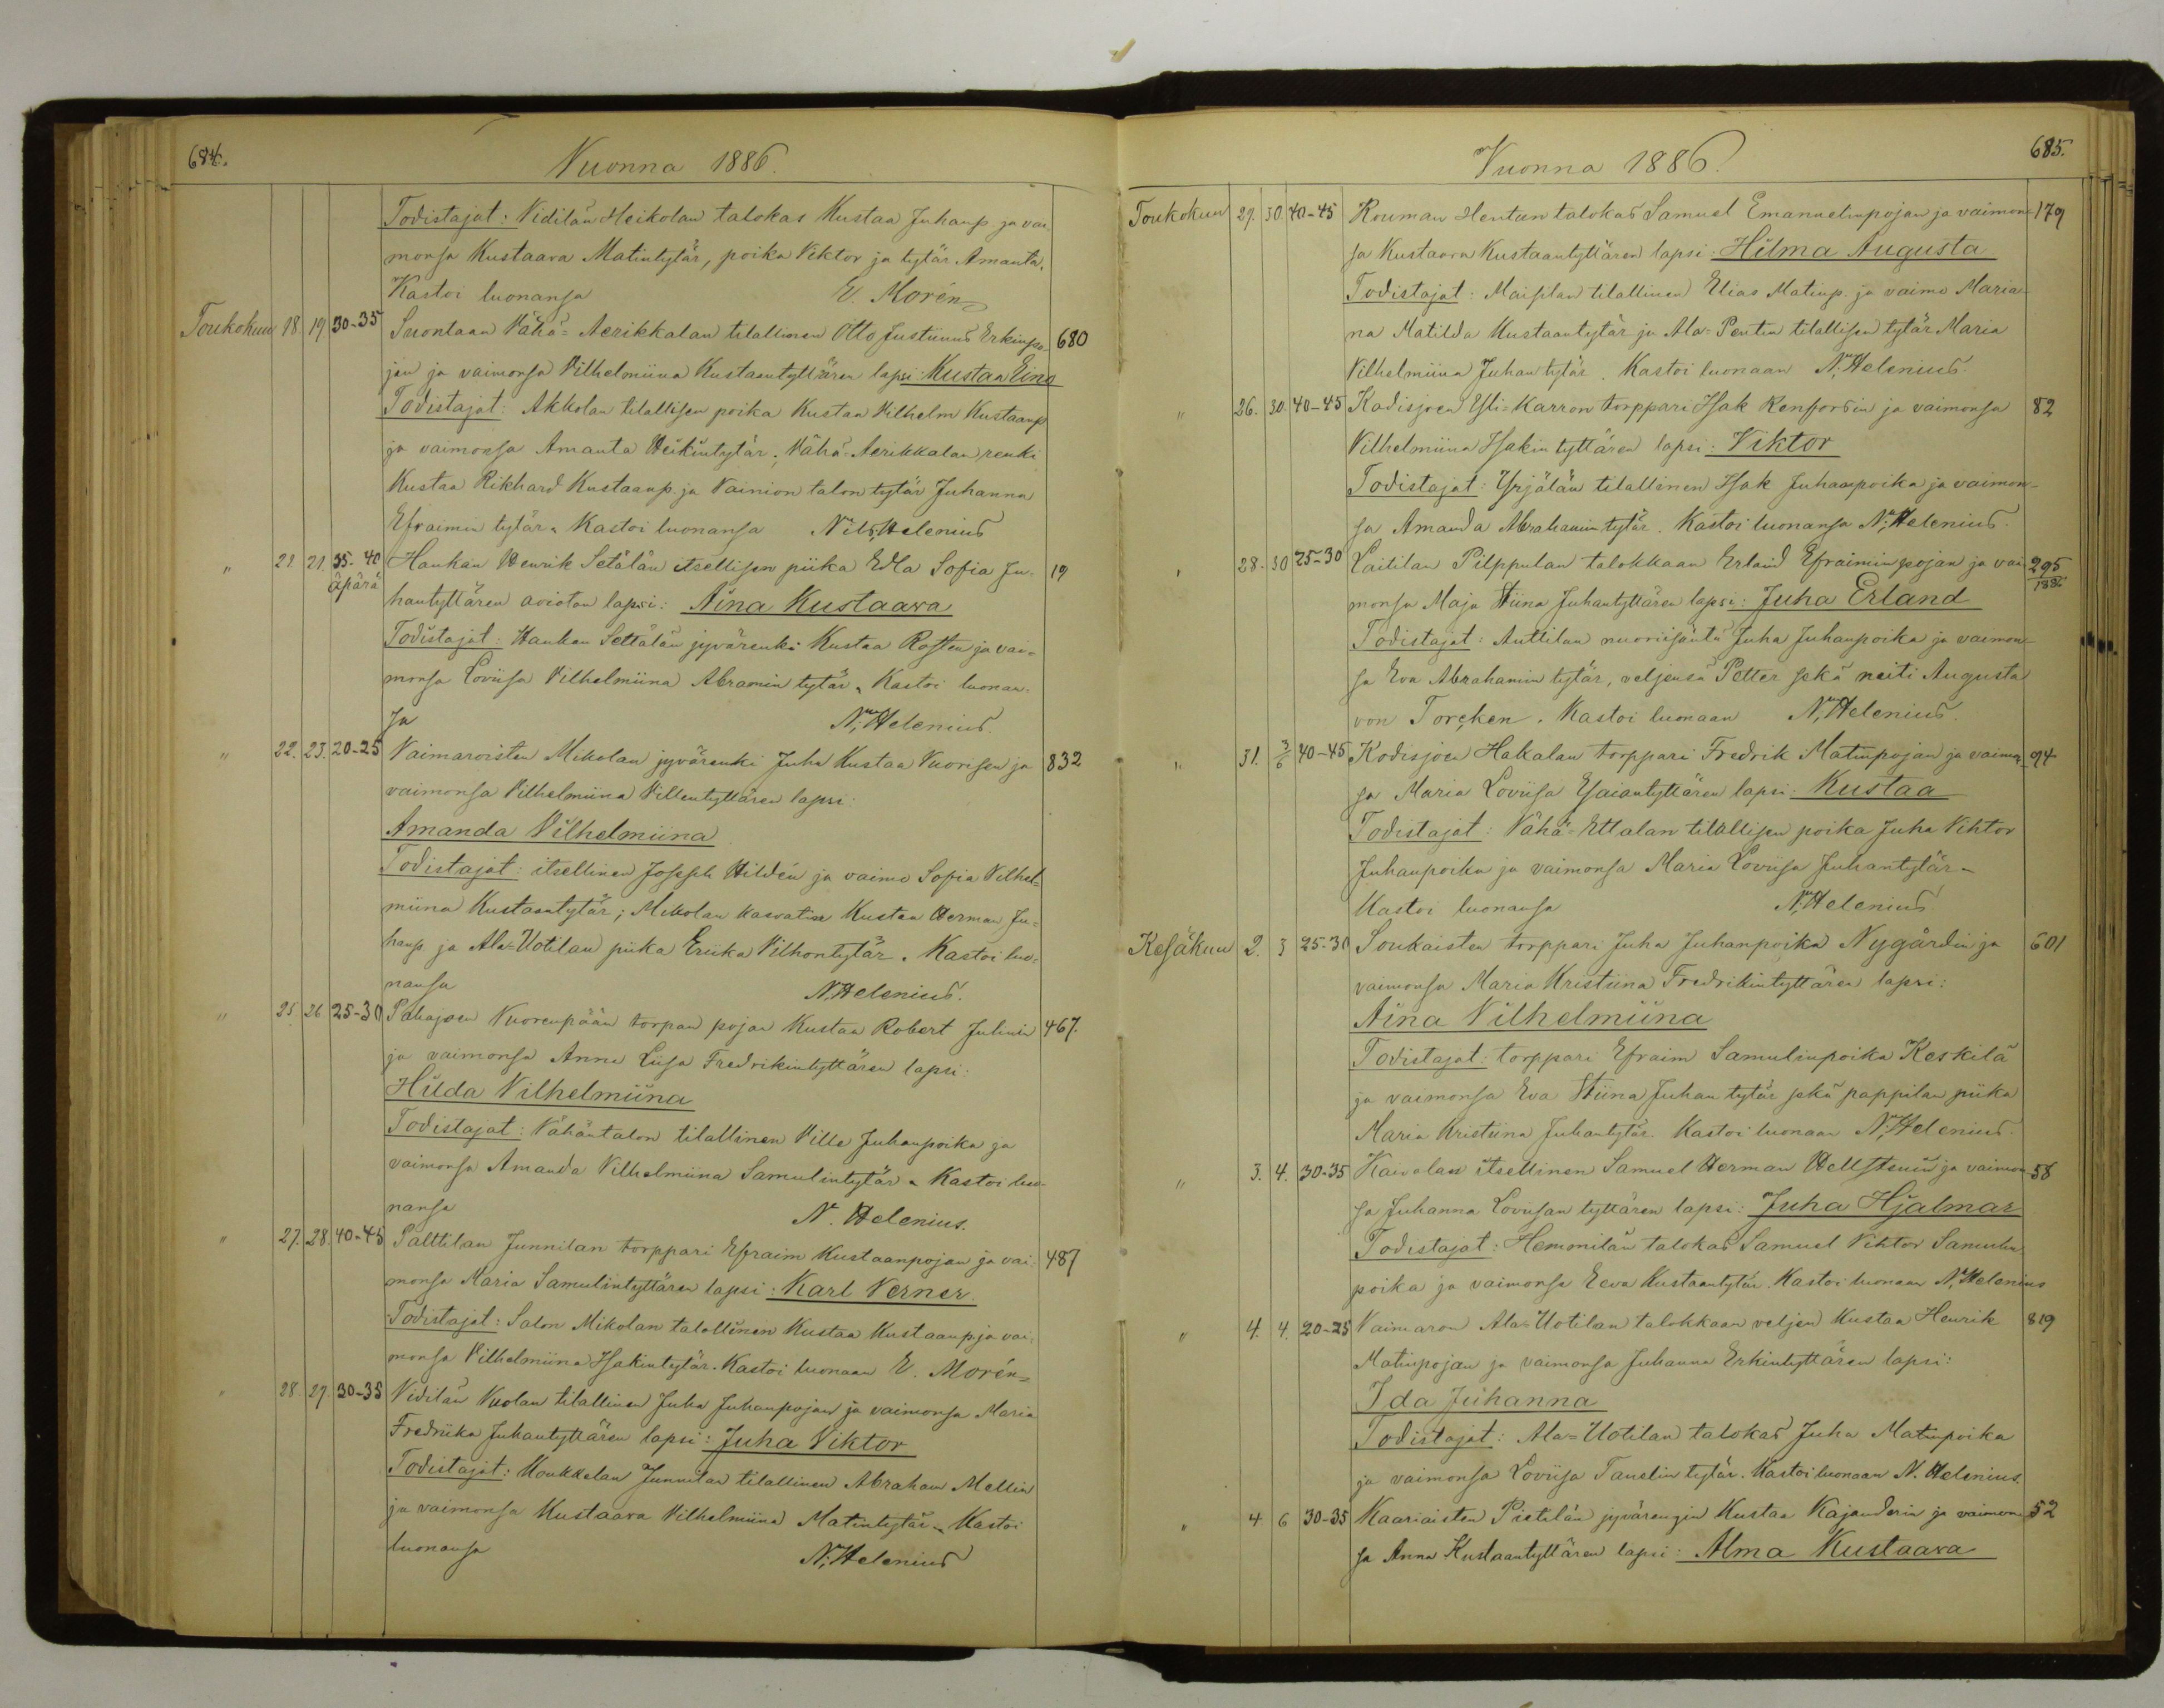 684.
Nuonna 1886.
Todistajat: Vidilän Heikolan talokas Kustaa Juhanp. ja vai-
monsa Kustaava Matintytär, poika Viktor ja tytär Amanta.
Kastoi luonansa E. Morén
Toukokuu 18 19 30-35 Suontaan Vähä-Aerikkalan tilallinen Otto Justiinus Erkinpo- 680
jan ja vaimonsa Vilhelmiina Kustaantyttären lapsi: Kustaa Eino
Todistajat: Akkolan tilallisen poika Kustaa Vilhelm Kustaanp.
ja vaimonsa Amanta Heikintytär; Vähä-Aerikkalan renki
Kustaa Rikhard Kustaanp. ja Vainion talon tytär Juhanna
Efraimin tytär. Kastoi luonansa Nils Helenius
" 21 21 35-40 Haukan Henrik Setälän itsellisen piika Edla Sofia Ju- 19
äpärä hantyttären avioton lapsi: Aina Kustaava
Todistajat: Haukan Settälän jyvärenki Kustaa Rosten ja vai-
monsa Loviisa Vilhelmiina Abramin tytär. Kastoi luonan-
sa N. Helenius.
" 22. 23. 20-25 Vaimaroisten Mikolan jyvärenki Juha Kustaa Vuorisen ja 832
vaimonsa Vilhelmiina Villentyttären lapsi:
Amanda Vilhelmiina
Todistajat: itsellinen Joseph Hildén ja vaimo Sofia Vilhel-
miina Kustaantytär; Mikolan kasvatus Kustaa Herman Ju-
hanp. ja Ala-Uotilan piika Eriika Vilhontytär. Kastoi luo-
nansa N. Helenius.
" 25. 26 25-30 Pahajoen Vuorenpään torpan pojan Kustaa Robert Julinin 467.
ja vaimonsa Anna Liisa Fredrikintyttären lapsi:
Hilda Vilhelmiina
Todistajat: Vähäntalon tilallinen Ville Juhanpoika ja
vaimonsa Amanda Vilhelmiina Samulintytär. Kastoi luo-
nansa N. Helenius.
" 27. 28. 40-45 Salttilan Junnilan torppari Efraim Kustaanpojan ja vai- 487
monsa Maria Samulintyttären lapsi: Karl Verner.
Todistajat: Salon Mikolan talollinen Kustaa Kustaanp. ja vai-
monsa Vilhelmiina Isakintytär. Kastoi luonaan E. Morén
" 28. 29. 30-35 Vidilän Kuolan tilallinen Juha Juhanpojan ja vaimonsa Maria
Fredriika Juhantyttären lapsi: Juha Viktor
Todistajat: Koukkelan Junnilan tilallinen Abraham Mellin
ja vaimonsa Kustaava Vilhelmiina Matintytär. Kastoi
luonansa N. Helenius
685.
Vuonna 1886.
Toukokuu 29. 30. 40-45 Kouman Hentun talokas Samuel Emanuelinpojan ja vaimon- 179
sa Kustaava Kustaantyttären lapsi: Hilma Augusta
Todistajat: Maisilan tilallinen Elias Matinp. ja vaimo Maria-
na Matilda Kustaantytär ja Ala-Pentin tilallisen tytär Maria
Vilhelmiina Juhantytär. Kastoi luonaan N. Helenius.
" 26. 30. 40-45 Kodisjoen Yli-Karron torppari Isak Renforsin ja vaimonsa 82
Vilhelmiina Isakin tyttären lapsi: Viktor
Todistajat: Yrjälän tilallinen Isak Juhanpoika ja vaimon-
sa Amanda Abrahamin tytär. Kastoi luonansa N. Helenius.
" 28. 30 25-30 Laitilan Pilppulan talokkaan Erland Efraiminpojan ja vai- 295
1886
monsa Maja Stiina Juhantyttären lapsi: Juha Erland
Todistajat: Anttilan nuoriisäntä Juha Juhanpoika ja vaimon-
sa Eva Abrahamin tytär, veljensä Petter sekä neiti Augusta
von Torcken. Kastoi luonaan N. Helenius.
" 31. 3/6 40-45 Kodisjoen Hakalan torppari Fredrik Matinpojan ja vaimon- 94
sa Maria Loviisa Esaiantyttären lapsi: Kustaa
Todistajat: Vähä-Ettalan tilallisen poika Juha Vihtor
Juhanpoika ja vaimonsa Maria Loviisa Juhantytär.
Kastoi luonansa N. Helenius
Kesäkuu 2. 3 25-30 Soukaisten torppari Juha Juhanpoika Nygårdin ja 601
vaimonsa Maria Kristiina Fredrikintyttären lapsi:
Aina Vilhelmiina
Todistajat: torppari Efraim Samulinpoika Keskilä
ja vaimonsa Eva Stiina Juhantytär sekä pappilan piika
Maria Kristiina Juhantytär. Kastoi luonaan N. Helenius.
" 3. 4. 30-35 Kaivolan itsellinen Samuel Herman Hellstenin ja vaimon- 58
sa Juhanna Loviisan tyttären lapsi: Juha Hjalmar
Todistajat: Hemmilän talokas Samuel Vihtor Samulin
poika ja vaimonsa Eeva Kustaantytär. Kastoi luonaan N. Helenius
" 4. 4. 20-25 Vaimaron Ala-Uotilan talokkaan veljen Kustaa Henrik 819
Matinpojan ja vaimonsa Juhanna Erkintyttären lapsi:
Ida Juhanna
Todistajat: Ala-Uotilan talokas Juha Matinpoika
ja vaimonsa Loviisa Tanelin tytär. Kastoi luonaan N. Helenius.
" 4 6 30-35 Kaariaisten Pietilän jyvärengin Kustaa Kajanderin ja vaimon- 52
sa Anna Kustaantyttären lapsi: Alma Kustaava